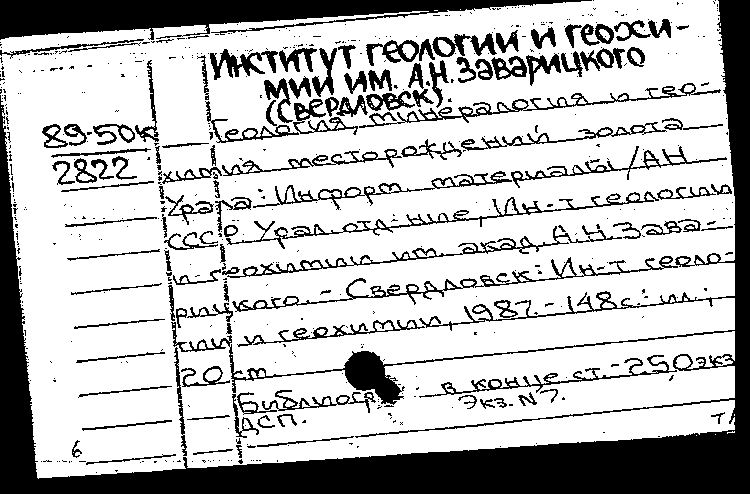 Институт геологии и геохи-
мии им. А.Н. Заварицкого
(Свердловск).
89-50к
2822
Геология, минералогия и гео-
химия месторождений золота
Урала: Информ. материалы / АН
СССР Урал. отд-ние, Ин-т геологии
и геохимии им. акад. А.Н. Зава-
рицкого. - Свердловск: Ин-т геоло-
гии и геохимии, 1987. - 148 с.: ил.;
20 см.
Библиогр. в конце ст. - 250 экз
ДСП. Экз. N 7.
6